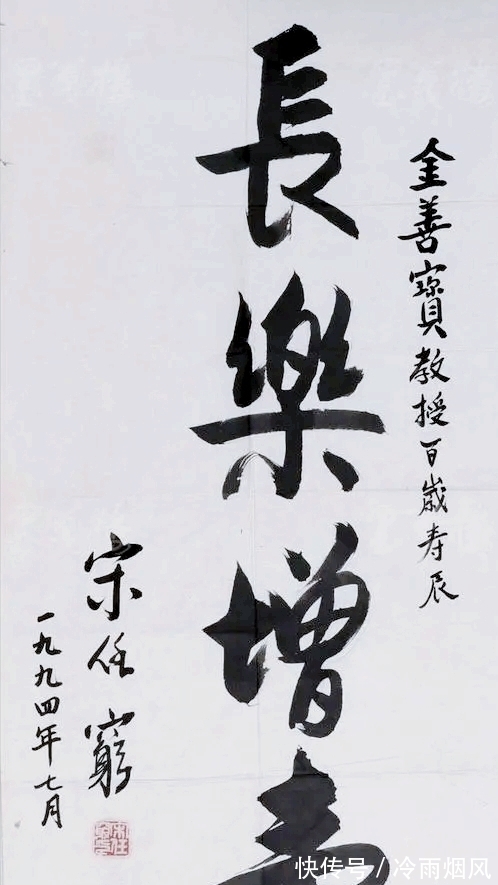 金善寶教授百歲寿辰
長樂增寿
宋任窮
一九九四年七月
快传号/冷雨烟风